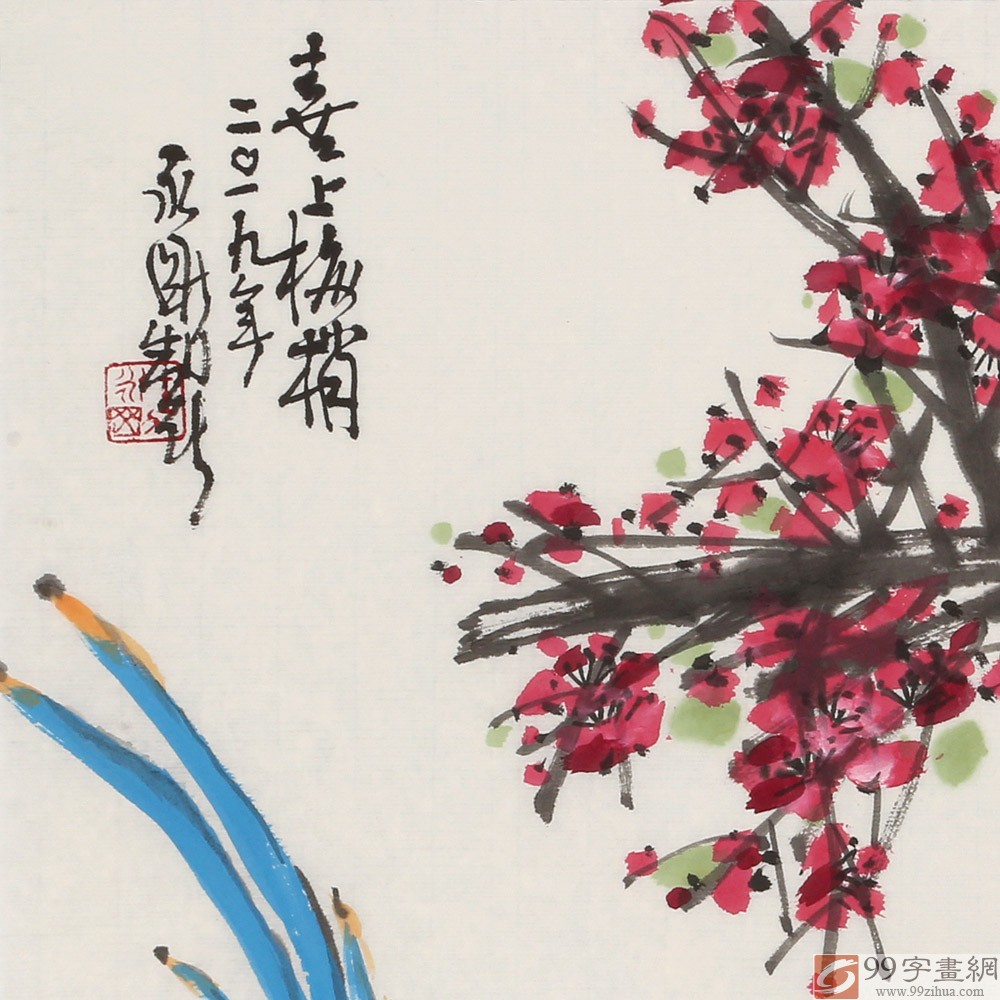 喜上梅梢
二〇一九年
永
99字畫網
www.99zihua.com